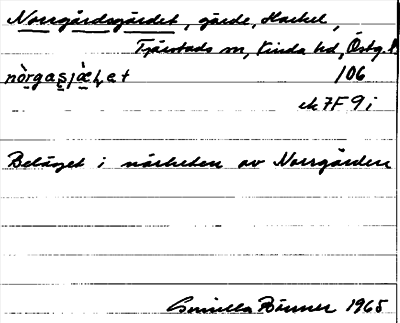 Norrgårdsgärdet, gärde, Hackel,
Tjärstads sn, Kinda hd, Östg.l.
106
ek 7F 9i
Beläget i närheten av Norrgården
Gunilla Körner 1965